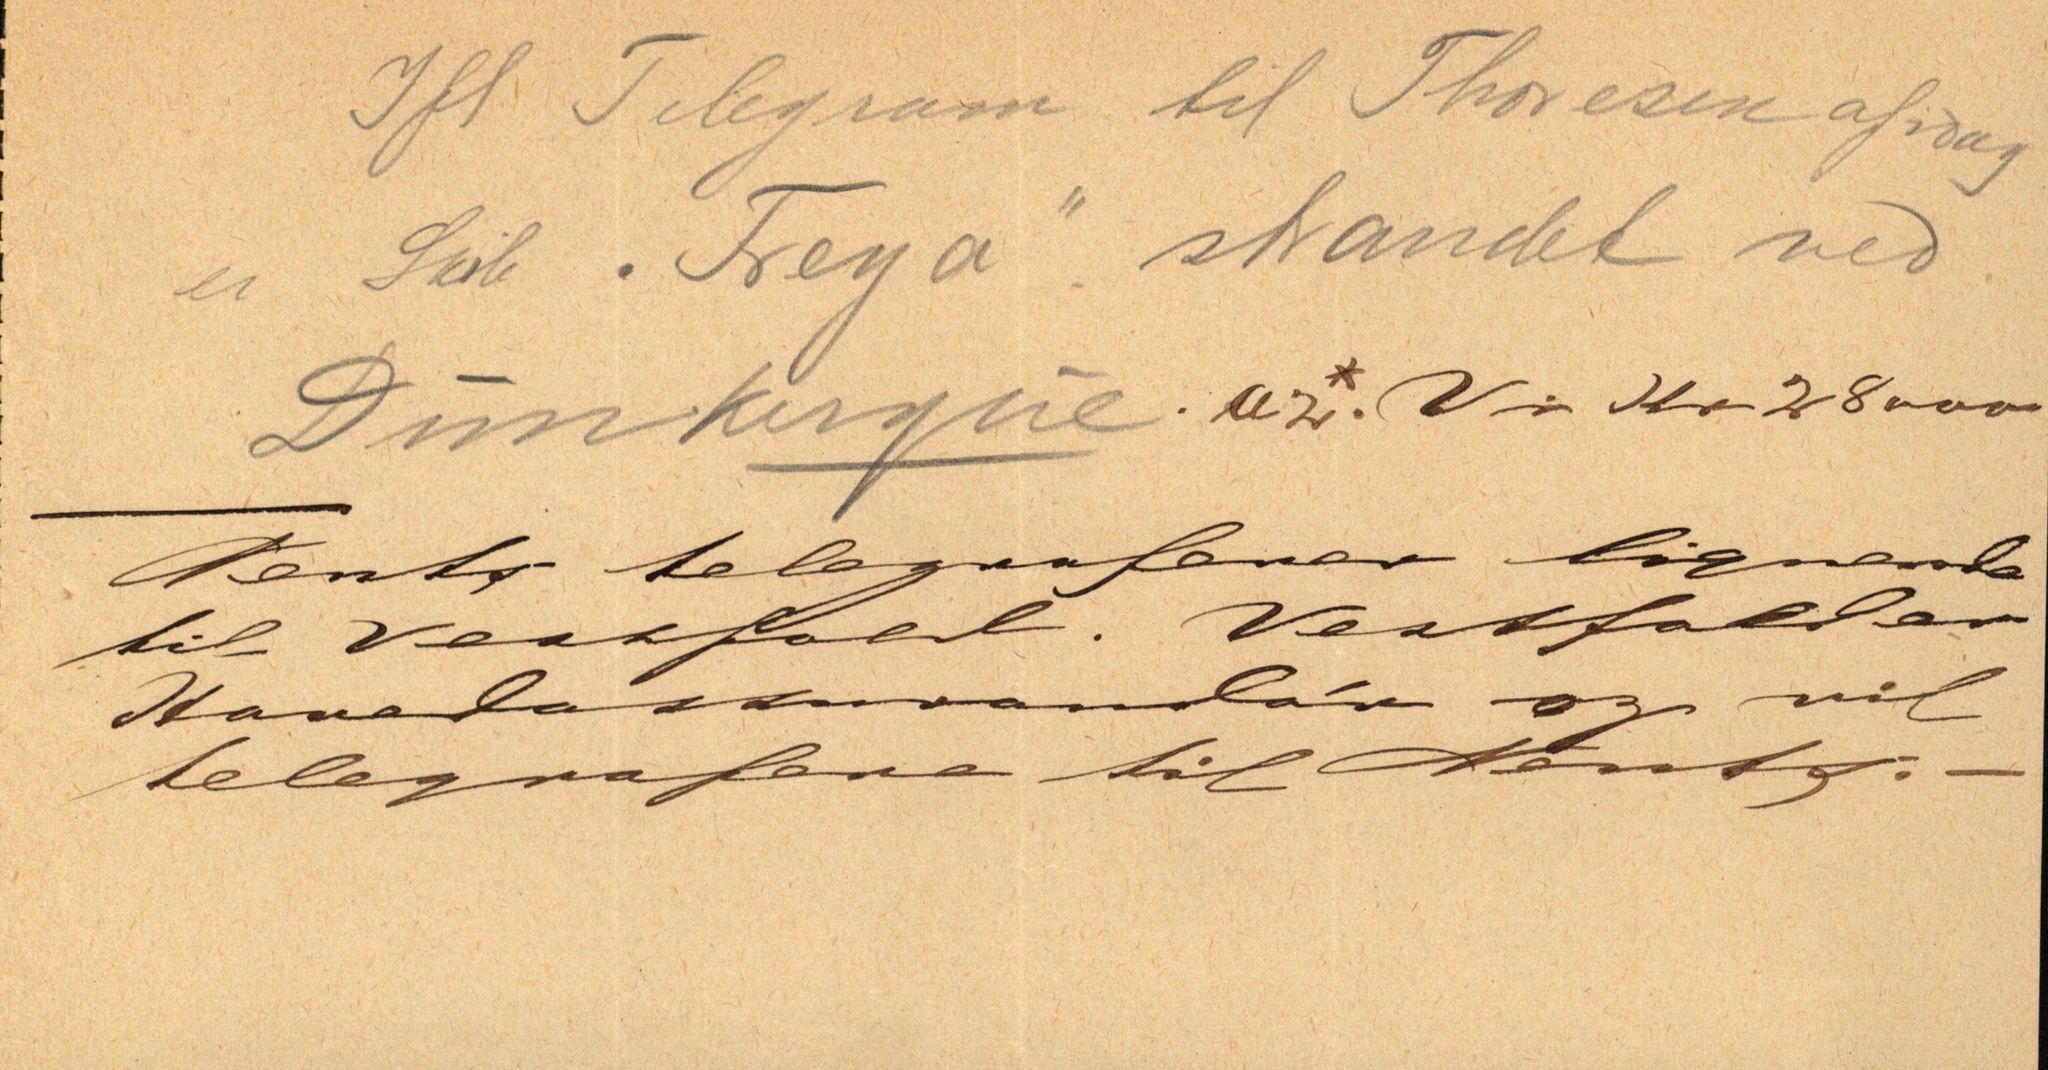 Ifl Telegram til Thoresen af idag
er Skib "Freya" strandet ved
Dunkerque. a2*. Vi Kr 28000
telegraferer lignende
til Vestfold. Vestfold er
Hovedassurandør og vil
telegrafere til